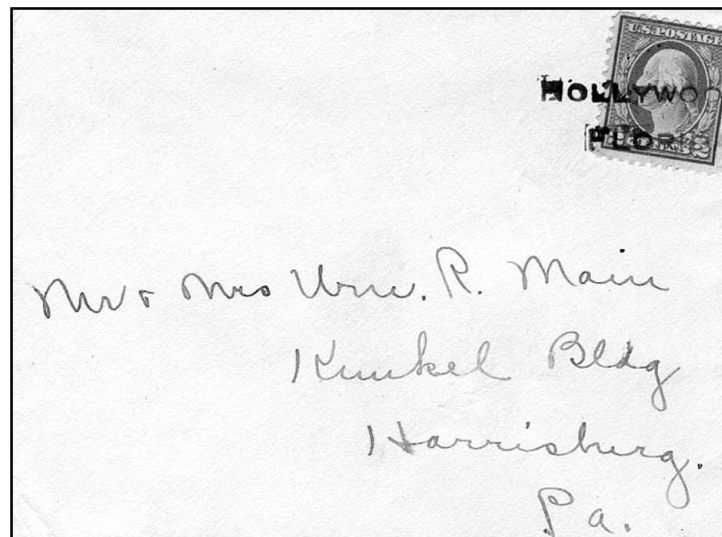 U.S. POSTAGE
HOLLYWOO
FLOR
Mr & Mrs Wm. R. Main
Kunkel Bldg
Harrisburg.
Pa.